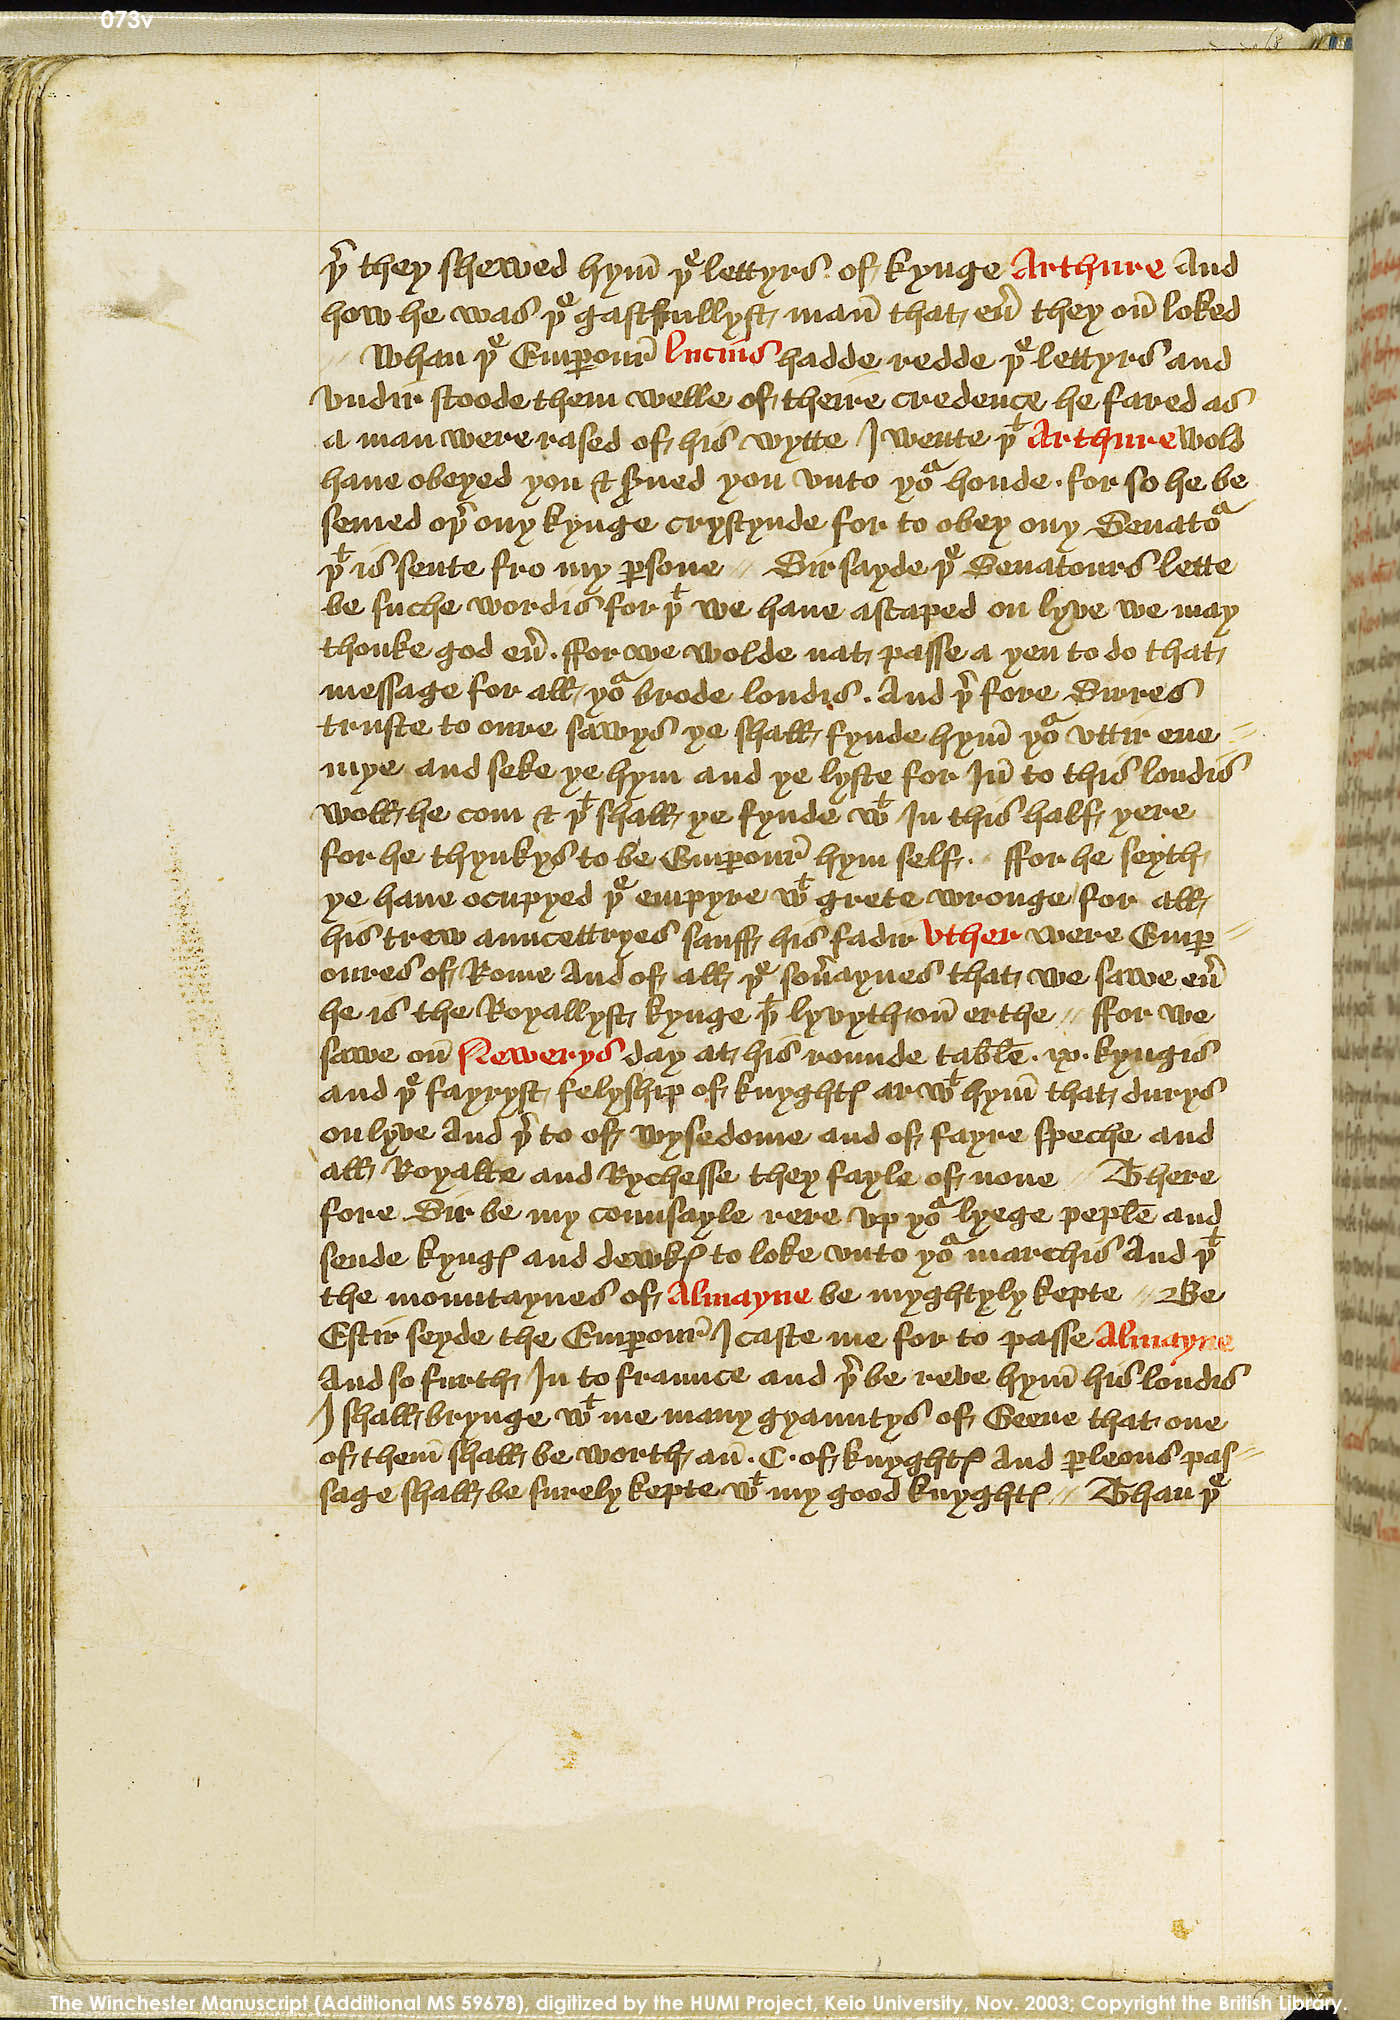 073v
þr they shewed hym̄ þe lettyrs of kynge Arthure And
how he was þe gastfullyst man̄ that eūr they on̄ loked
// Whan þe Emperour Lucius hadde redde þe lettyrs and
vndir stoode them welle of theire credence he fared as
a man were rased of his wytte I wente þt Arthure wold
haue obeyed you & serued you vnto yor honde . for so he be
semed oþr ony kynge crystynde for to obey ony Senator
þt is sente fro my persone // Sir sayde þe Senatours lette
be suche wordis for þt we haue ascaped on lyve we may
thonke god eūr . ffor we wolde nat passe a yen to do that
message for all yor brode londis . And þrfore Sirres
truste to oure sawys ye shall fynde hym̄ yor vttir ene //
mye and seke ye hym and ye lyste for In̄ to this londis
woll he com & þt shall ye fynde wt In this half yere
for he thynkys to be Emperour hym self . // ffor he seyth
ye haue ocupyed þe empyre wt grete wronge for all
his trew auncettryes sauff his fadir Vther were Emp //
oures of Rome And of all þe sou̅aynes that we sawe eūr
he is the Royallyst kynge þt lyvyth on̄ erthe // ffor we
sawe on̄ Newerys day at his rounde table . ix . kyngis
and þe fayryst felyship of knyghtes ar wt hym̄ that durys
on lyve And þrto of wysedome and of fayre speche and
all Royalte and Rychesse they fayle of none // There
fore Sir be my counsayle rere vp yor lyege peple and
sende kynges and dewkes to loke vnto yor marchis And þt
the mountaynes of Almayne be myghtyly kepte // Be
Estir seyde the Emperour I caste me for to passe Almayne
And so furth In to fraunce and þr be reve hym̄ his londis
I shall brynge wt me many gyauntys of Geene that one
of them̄ shall be worth an̄ . C . of knyghtes And perleous pas //
sage shall be surely kepte wt my good knyghtes // Than þe
The Winchester Manuscript (Additional MS 59678), digitized by the HUMI Project, Keio University, Nov. 2003; Copyright the British Library.